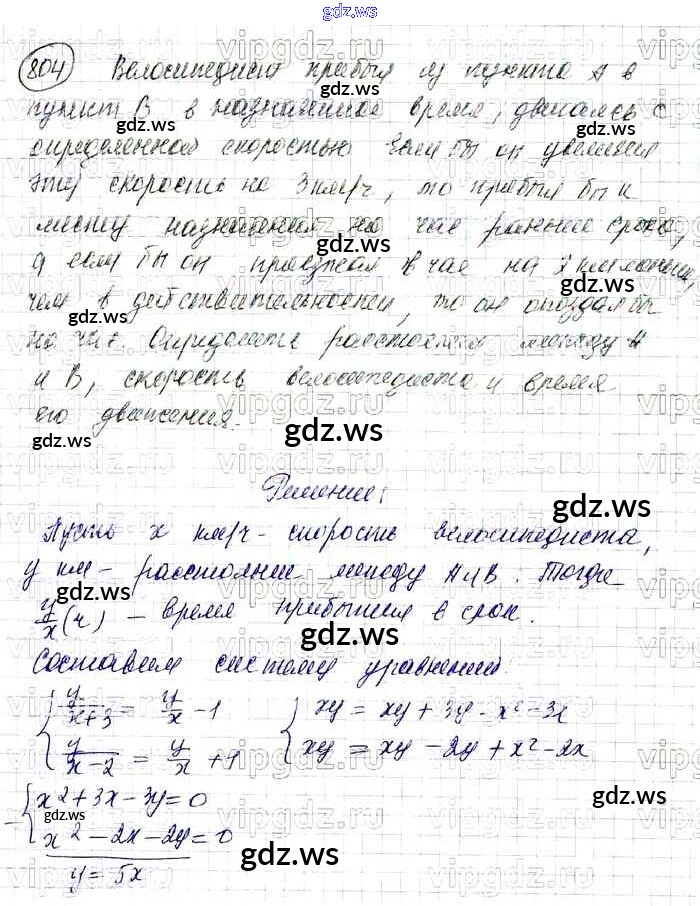 gdz.ws
804 Велосипедист прибыл из пункта А в
пункт В в назначенное время, двигаясь с
определенной скоростью. Если бы он увеличил
эту скорость на 3 км/ч, то прибыл бы к
месту назначения на час раньше срока,
а если бы он проезжал в час на 2 км меньше,
чем в действительности, то он опоздал бы
на час. Определите расстояние между А
и В, скорость велосипедиста и время
его движения.
Решение:
Пусть x км/ч - скорость велосипедиста,
y км - расстояние между А и В. Тогда
y/x (ч) - время прибытия в срок.
Составим систему уравнений:
y/(x+3) = y/x - 1 xy = xy + 3y - x² - 3x
y/(x-2) = y/x + 1 xy = xy - 2y + x² - 2x
x² + 3x - 3y = 0
- x² - 2x - 2y = 0
y = 5x